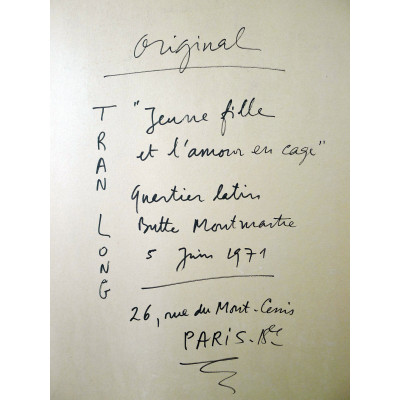 Original
TRAN LONG
"Jeune fille
et l'amour en cage"
Quartier latin
Butte Montmartre
5 Juin 1971
26, rue du Mont-Cenis
PARIS-18e